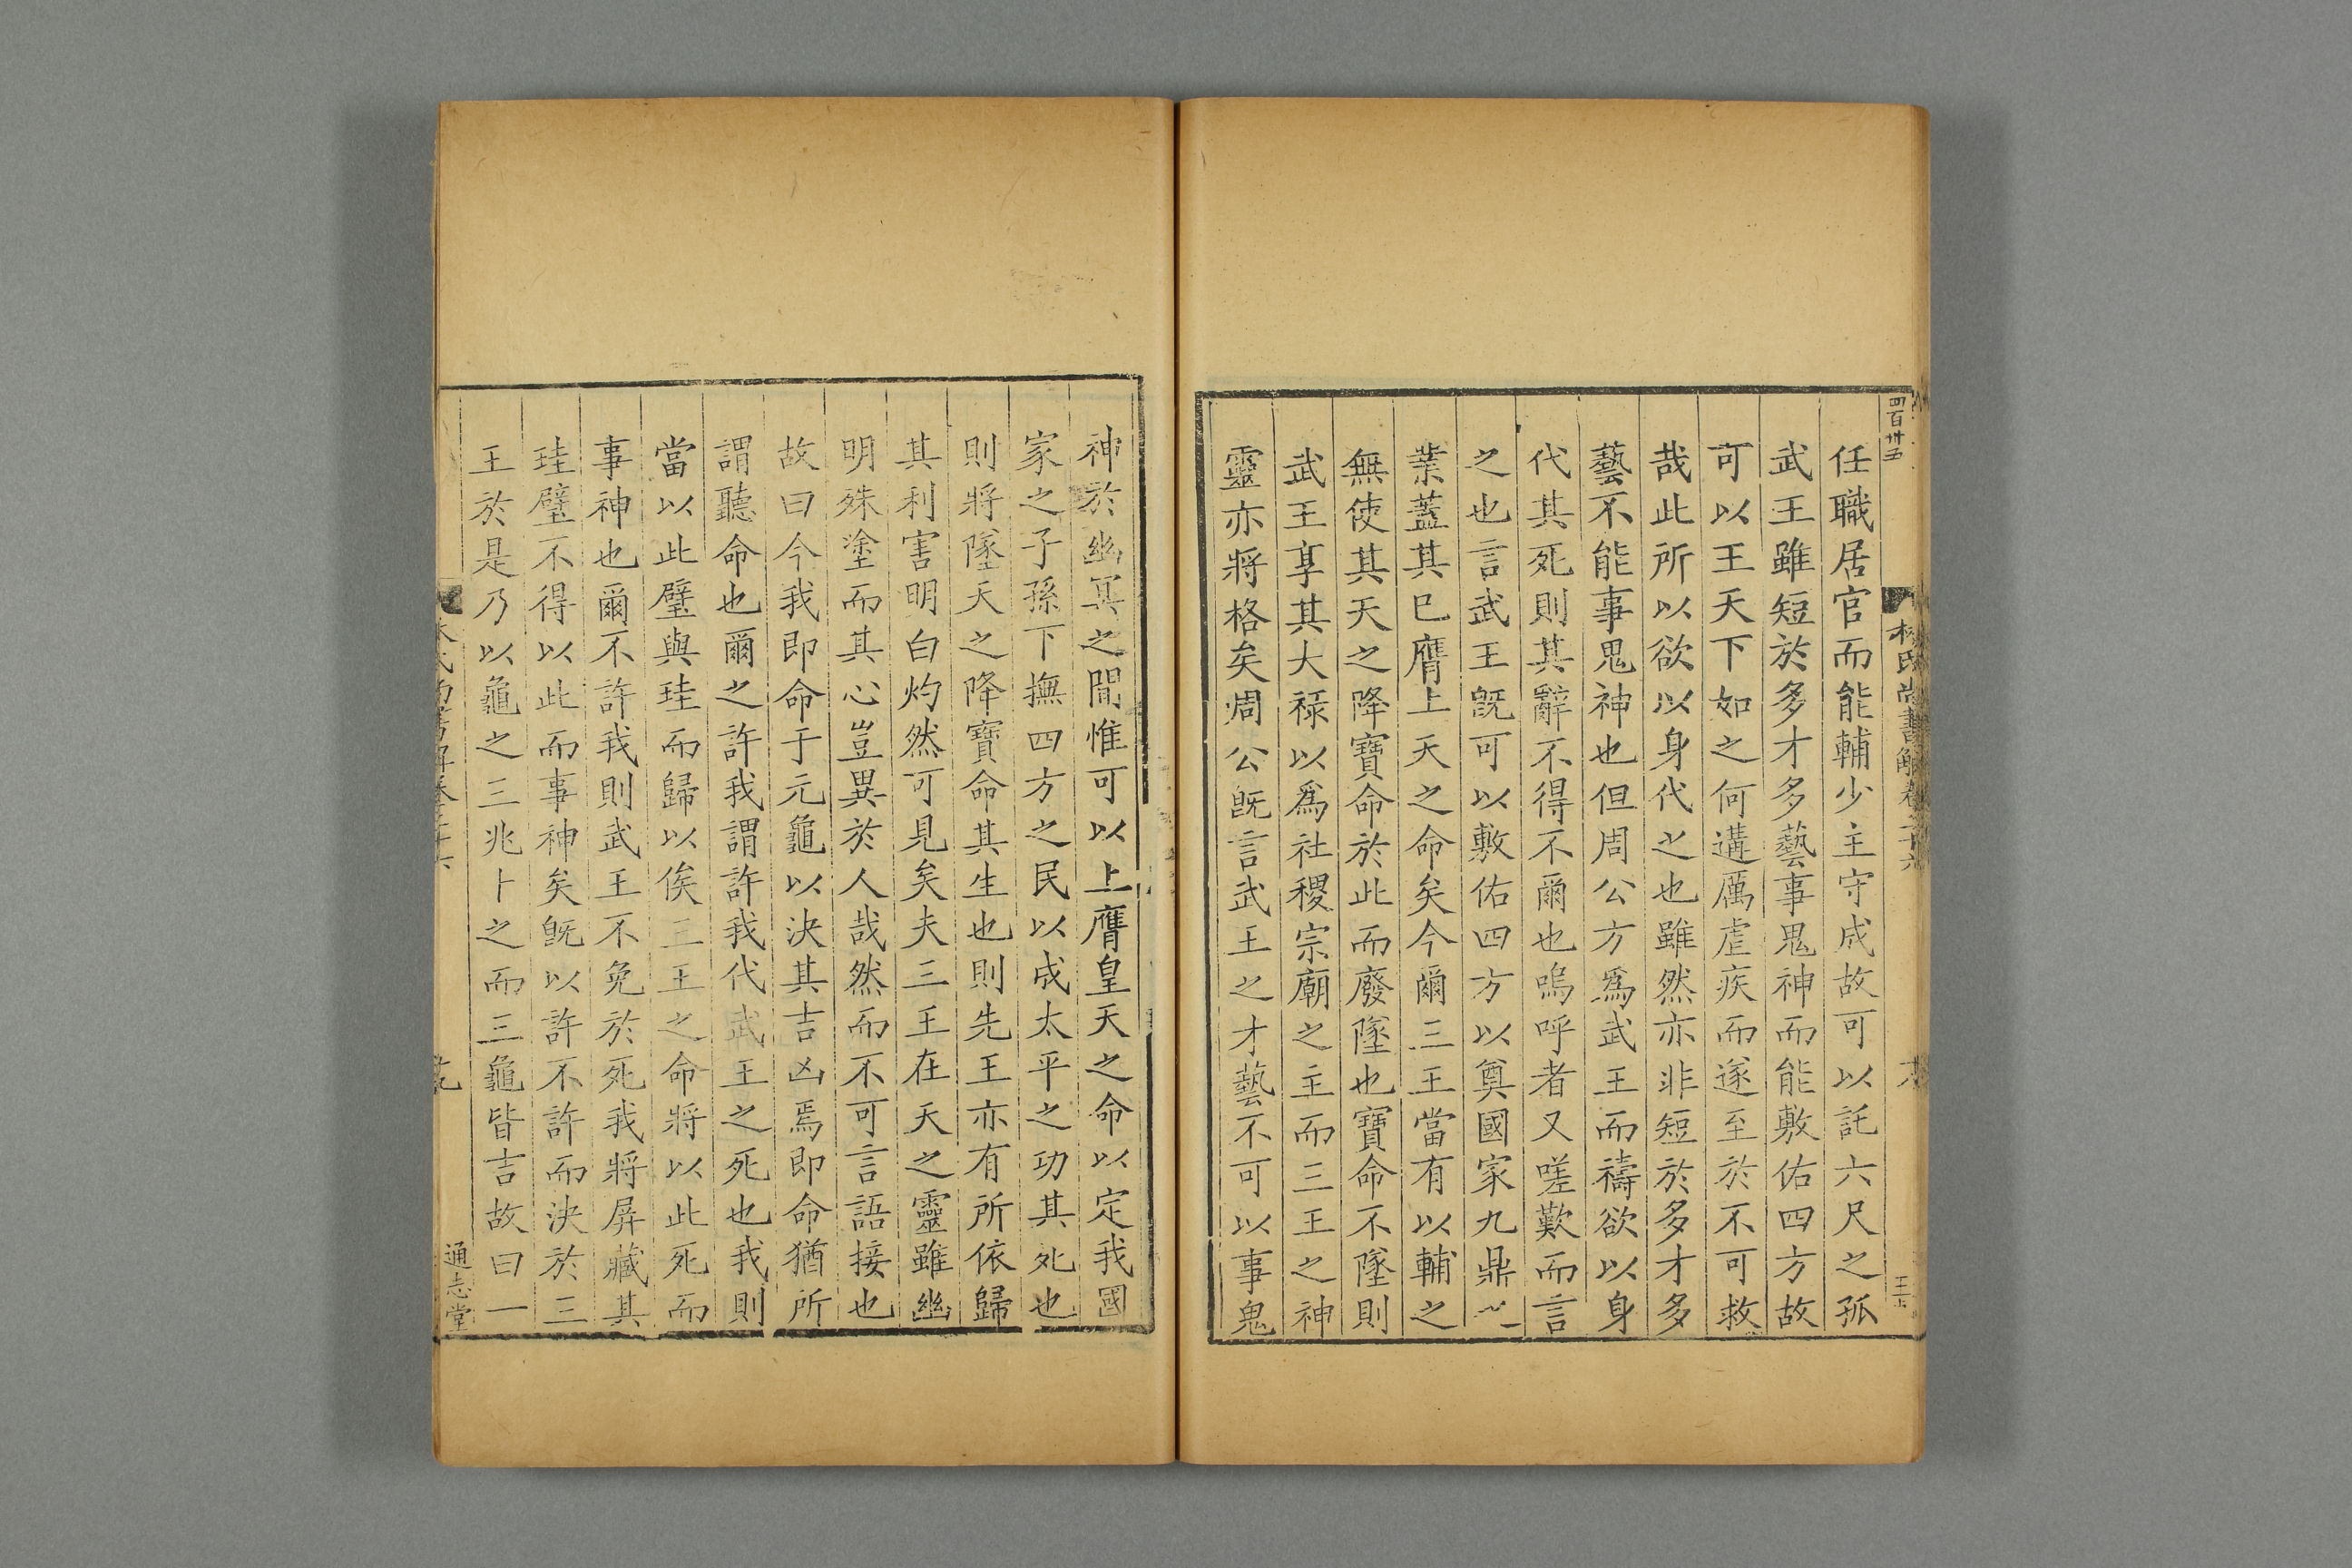 四百卅五
林氏尚書解卷二十六
任職居官而能輔少主守成故可以託六尺之孤
武王雖短於多才多藝事鬼神而能敷佑四方故
可以王天下如之何遘厲虐疾而遂至於不可救
哉此所以欲以身代之也雖然亦非短於多才多
藝不能事鬼神也但周公方爲武王而禱欲以身
代其死則其辭不得不爾也嗚呼者又嗟歎而言
之也言武王旣可以敷佑四方以奠國家九鼎之
業蓋其已膺上天之命矣今爾三王當有以輔之
無使其天之降寶命於此而廢墜也寶命不墜則
武王享其大祿以爲社稷宗廟之主而三王之神
靈亦將格矣周公旣言武王之才藝不可以事鬼
神於幽冥之間惟可以上膺皇天之命以定我國
家之子孫下撫四方之民以成太平之功其死也
則將墜天之降寶命其生也則先王亦有所依歸
其利害明白灼然可見矣夫三王在天之靈雖幽
明殊塗而其心豈異於人哉然而不可言語接也
故曰今我即命于元龜以決其吉凶焉即命猶所
謂聽命也爾之許我謂許我代武王之死也我則
當以此璧與珪而歸以俟三王之命將以此死而
事神也爾不許我則武王不免於死我將屏藏其
珪璧不得以此而事神矣旣以許不許而決於三
王於是乃以龜之三兆卜之而三龜皆吉故曰一
十九
通志堂